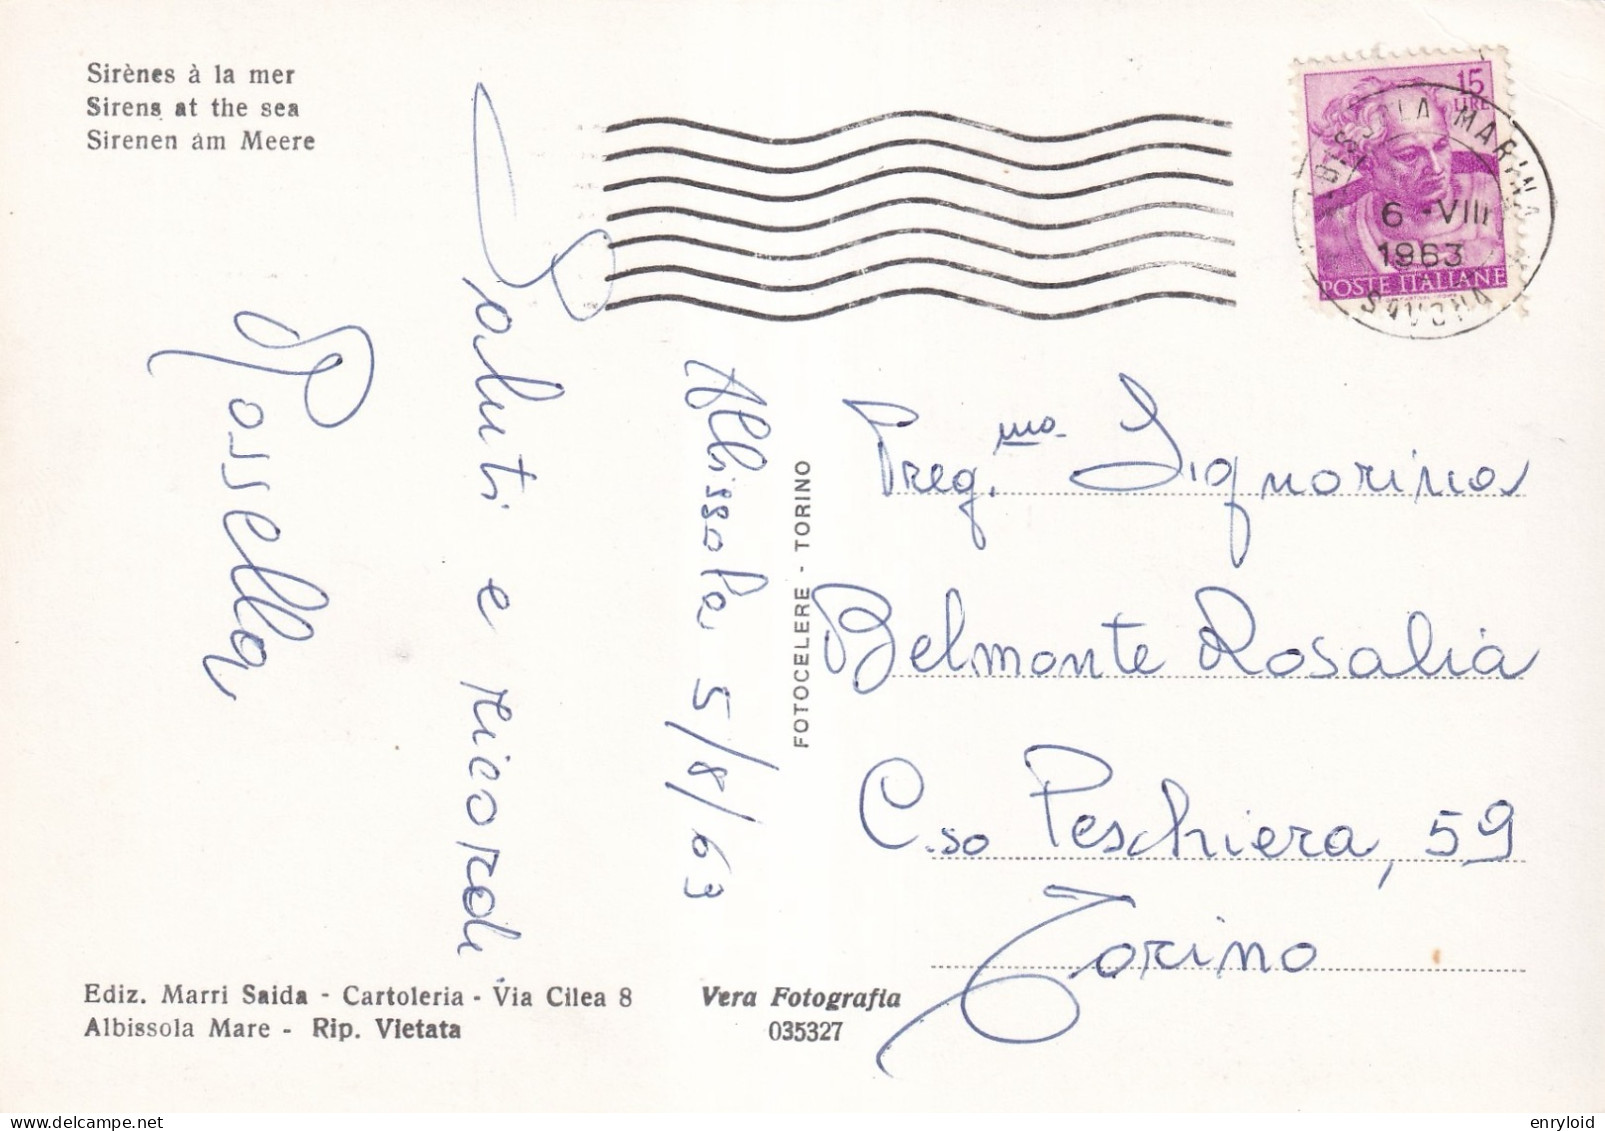 Sirènes à la mer
Sirens at the sea
Sirenen am Meere
Saluti e ricordi
Rossella
Albissola 5/8/63
FOTOCELERE - TORINO
15
LIRE
POSTE ITALIANE
6 -VIII
1963
SAVONA
Preg.ma Signorina
Belmonte Rosalia
C.so Peschiera, 59
Torino
Ediz. Marri Saida - Cartoleria - Via Cilea 8
Albissola Mare - Rip. Vietata
Vera Fotografia
035327
enryloid